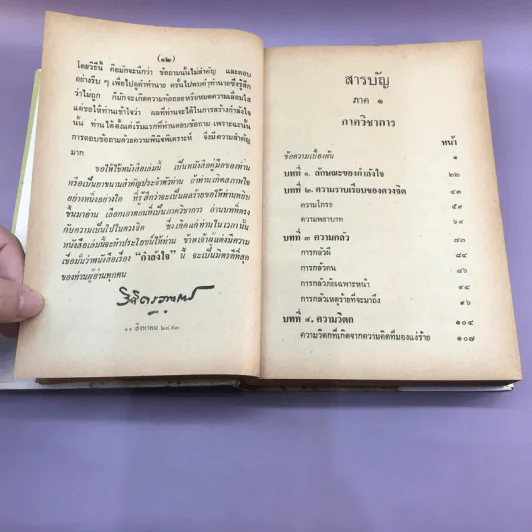 (๑๒)
โดยวิธีนี้ คือมักจะนึกว่า ข้อถามนั้นไม่สำคัญ และตอบ
อย่างรีบ ๆ เพื่อไปดูคำทำนาย ครั้นไปพบคำทำนายซึ่งรู้สึก
ว่าไม่ถูก ก็มักจะเกิดความท้อถอยหรือหมดความเลื่อมใส
แต่ขอให้ท่านเข้าใจว่า ผลที่ท่านจะได้ในการสร้างกำลังใจ
นั้น ท่านได้ตั้งแต่เริ่มแรกที่ท่านตอบข้อถาม เพราะฉะนั้น
การตอบข้อถามด้วยความพินิจพิเคราะห์ จึงมีความสำคัญ
มาก
ขอให้ใช้หนังสือเล่มนี้ เป็นหนังสือคู่มือของท่าน
หรือเป็นยาขนานสำคัญประจำตัวท่าน ถ้าท่านเกิดสภาพใจ
อย่างหนึ่งอย่างใด ที่รู้สึกว่าจะเป็นผลร้ายขอให้ท่านหยิบ
ขึ้นมาอ่าน เลือกเอาตอนที่เป็นภาควิชาการ อ่านบทที่ตรง
กับความเป็นไปในดวงจิต ซึ่งเกิดแก่ท่านในเวลานั้น
หนังสือเล่มนี้จะทำประโยชน์ให้ท่าน ข้าพเจ้าผู้แต่งมีความ
เชื่อมั่นว่าหนังสือเรื่อง "กำลังใจ" นี้ จะเป็นมิตรดีที่สุด
ของท่านผู้อ่านทุกคน
สิงหาคม ๒๔๙๓
สารบัญ
ภาค ๑
ภาควิชาการ
หน้า
ข้อความเบื้องต้น ๑
บทที่ ๑. ลักษณะของกำลังใจ ๒๒
บทที่ ๒. ความราบเรียบของดวงจิต ๔๓
ความโกรธ ๕๙
ความพยาบาท ๖๙
บทที่ ๓ ความกลัว ๗๓
การกลัวผี ๘๔
การกลัวคน ๘๖
การกลัวภัยเฉพาะหน้า ๙๔
การกลัวเหตุร้ายที่จะมาถึง ๙๖
บทที่ ๔. ความวิตก ๑๐๔
ความวิตกที่เกิดจากความคิดที่มองแง่ร้าย ๑๐๗